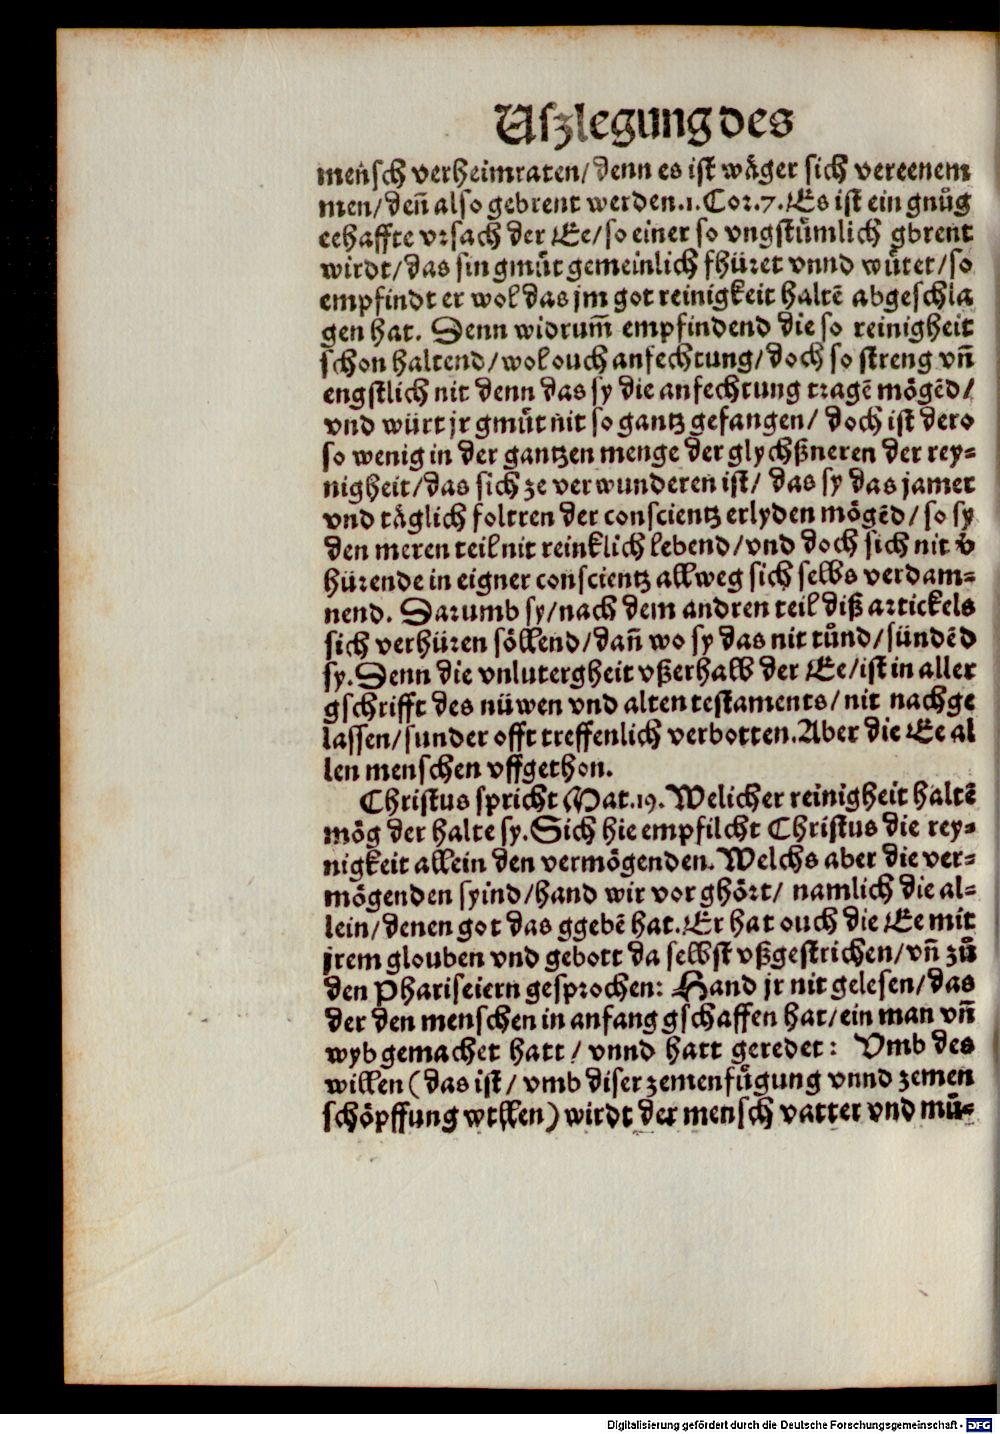 Uſzlegung des
menſch verheimraten/ denn es iſt wäger ſich vereenem
men/ deñ alſo gebrent werden.1.Cor.7.Es iſt ein gnůg
eehaffte vrſach der Ee/ ſo einer ſo vngſtümlich gbrent
wirdt/ das ſin gmůt gemeinlich fhüret vnnd wůtet/ ſo
empfindt er wol das jm got reinigkeit haltē abgeſchla
gen hat. Denn widrum̄ empfindend die ſo reinigheit
ſchon haltend/ wol ouch anfechtung/ doch ſo ſtreng vñ
engſtlich nit denn das ſy die anfechtung tragē mögēd/
vnd würt jr gmůt nit ſo gantz gefangen/ doch iſt dero
ſo wenig in der gantzen menge der glychßneren der rey⸗
nigheit/ das ſich ze verwunderen iſt/ das ſy das jamer
vnd täglich foltren der conſcientz erlyden mögēd/ ſo ſy
den meren teil nit reinklich lebend/ vnd doch ſich nit v̄
hürende in eigner conſcientz allweg ſich ſelbs verdam⸗
nend. Darumb ſy/ nach dem andren teil diß artickels
ſich verhüren ſöllend/ dañ wo ſy das nit tůnd/ ſündēd
ſy. Denn die vnlutergheit vßerhalb der Ee/ iſt in aller
gſchrifft des nüwen vnd alten teſtaments/ nit nachge
laſſen/ ſunder offt treffenlich verbotten. Aber die Ee al
len menſchen vffgethon.
Chriſtus ſpricht Mat.19. Welicher reinigheit haltē
mög der halte ſy. Sich hie empfilcht Chriſtus die rey⸗
nigkeit allein den vermögenden. Welchs aber die ver⸗
mögenden ſyind/ hand wir vor ghört/ namlich die al⸗
lein/ denen got das ggebē hat. Er hat ouch die Ee mit
jrem glouben vnd gebott da ſelbſt vßgeſtrichen/ vñ zů
den Phariſeiern geſprochen: Hand jr nit geleſen/ das
der den menſchen in anfang gſchaffen hat/ ein man vñ
wyb gemachet hatt/ vnnd hatt geredet: Vmb des
willen (das iſt/ vmb diſer zemenfůgung vnnd zemen
ſchöpffung wtllen) wirdt der menſch vatter vnd mů⸗
Digitalisierung gefördert durch die Deutsche Forschungsgemeinschaft - DFG